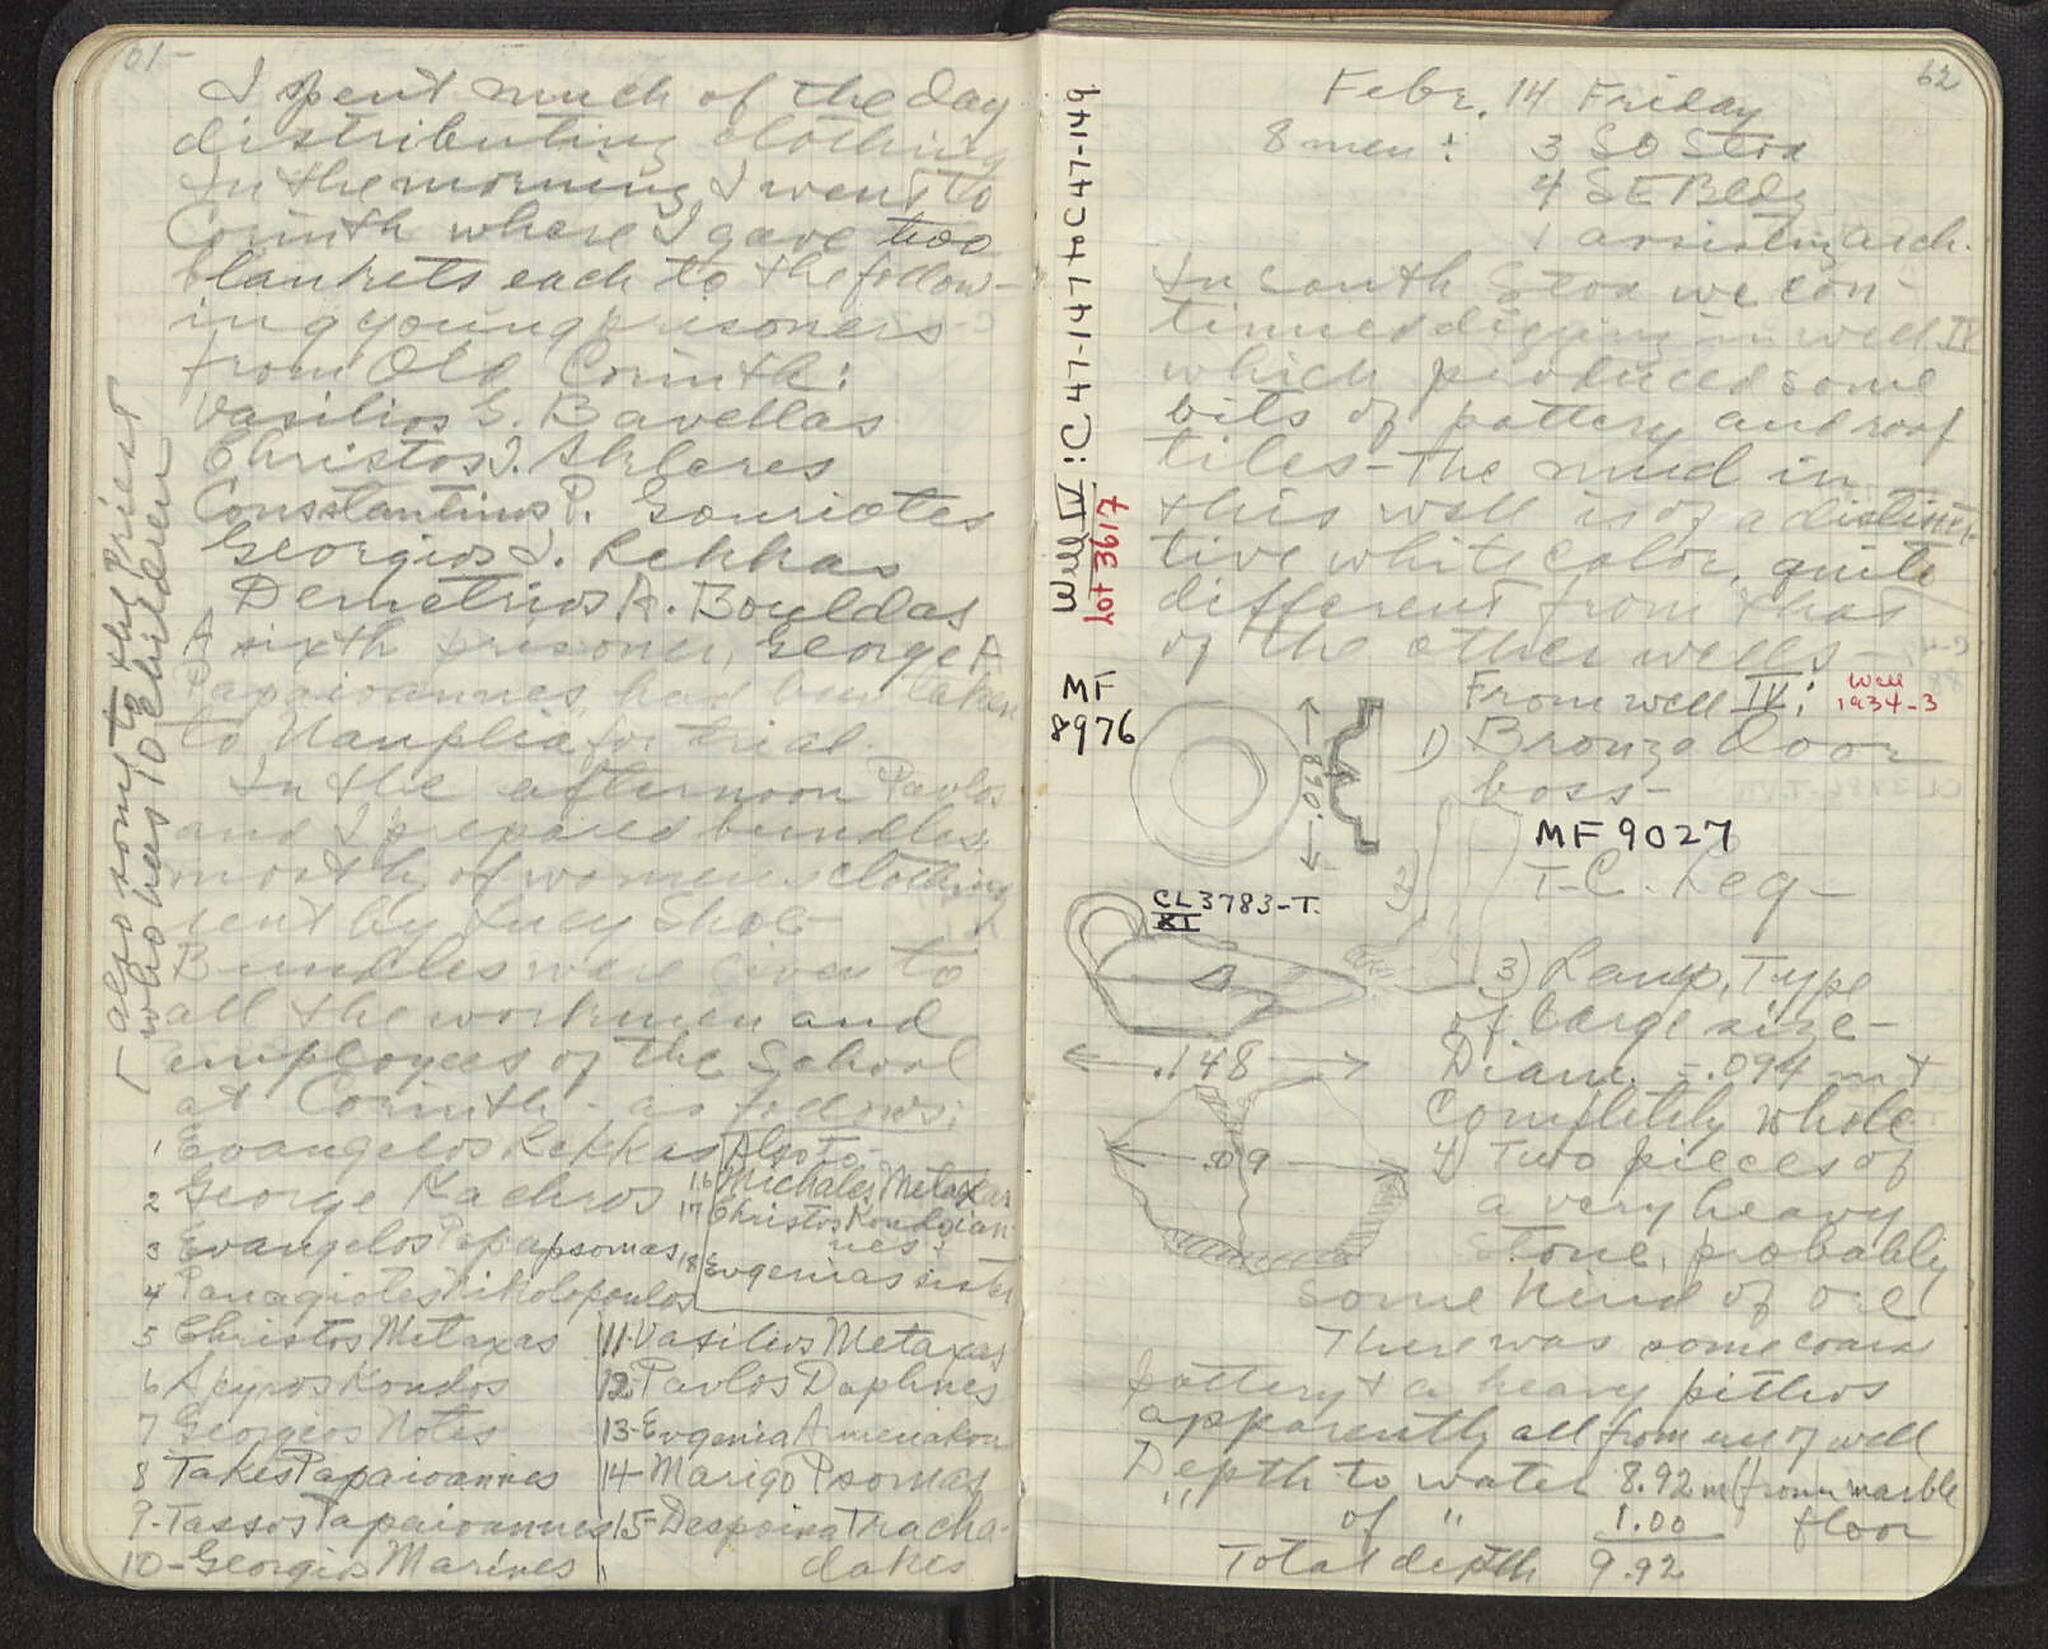 61-
I spent much of the day
distributing clothing
In the morning I went to
Corinth where I gave two
blankets each to the follow-
ing young prisoners
from Old Corinth:
Vasilios G. Bavellas
Christos I.
Constantinos P. Gouriotes
Georgios I. Lekkas
Demetrios A. Bouldas
A sixth prisoner, George A
Papaioannes, had been taken
to Nauplia for trial.
In the afternoon Pavlos
and I prepared bundles
mostly of womens clothing
sent by Lucy Shoe-
Bundles were given to
all the workmen and
employees of the School
at Corinth - as follows:
1 Evangelos Lekkas
2 George Kachros
3 Evangelos Papapsomas
4 Panagiotes Nikolopoulos
5 Christos Metaxas
6 Kondos
7 Georgios Notes
8 Takes Papaioannes
9-Tassos Papaioannes
10-Georgios Marines
Also to
16 Michales Metaxas
17 Christos Kondoian-
nes
18 Evgenias sister
11-Vasilios Metaxas
12-Pavlos Daphnes
13-Evgenia
14-Marigo Psomas
15-Despoina Tracha-
dakes
also some to the Priest
who has 10 children
62
Febr. 14 Friday
8 men: 3 So Stoa
4 SE Bldg
1 assisting arch.
In South Stoa we con-
tinued digging in well IV
which produced some
bits of pottery and roof
tiles - The mud in
this well is of a distinc-
tive white color, quite
different from that
of the other wells -
Well IV: C 47-147 to C 47-149
Lot 3617
From well IV: Well
1934-3
MF
8976
.068
1) Bronze door
boss-
MF 9027
2) T-C. Leg-
CL3783-T.
XI
3) Lamp, Type
of large size-
.148
Diam. = .094 m +
Completely whole
.09
4) Two pieces of
a very heavy
Stone, probably
some kind of ore
There was some coarse
pottery & a heavy pithos
apparently all from use of well
Depth to water 8.92 m (from marble
" of " 1.00 floor
Total depth 9.92